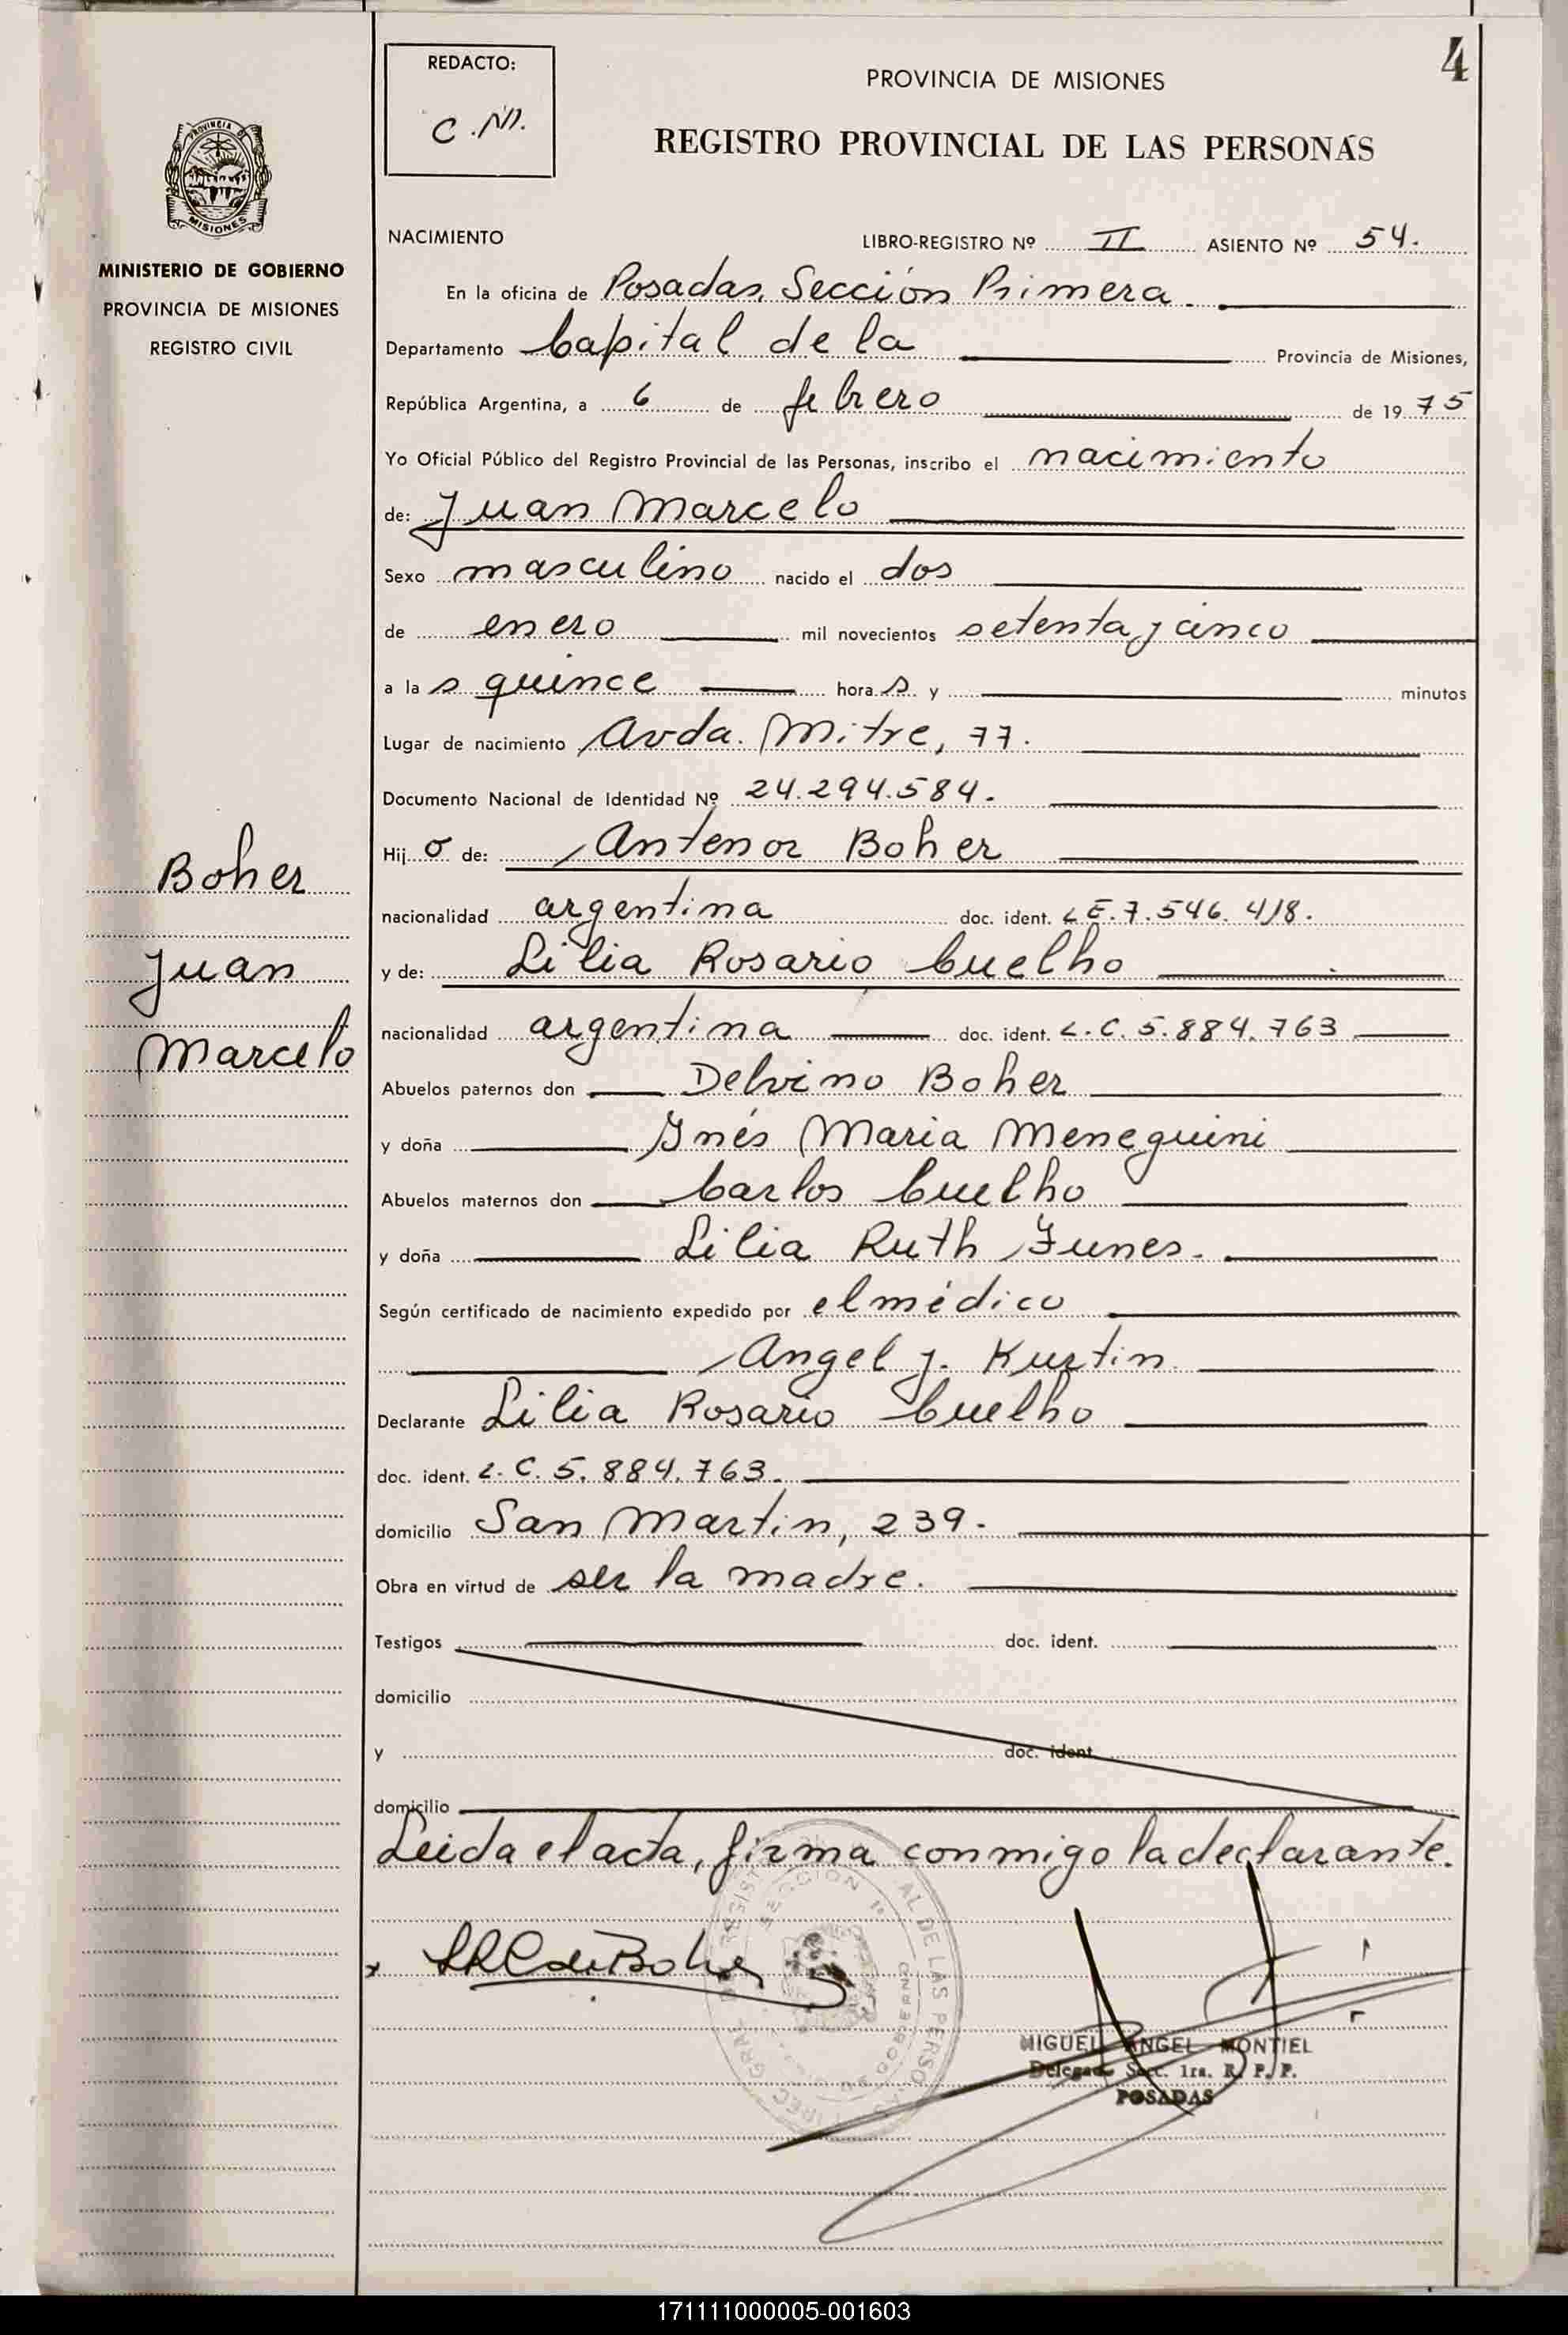 4
REDACTO:
C.M.
PROVINCIA DE MISIONES
REGISTRO PROVINCIAL DE LAS PERSONAS
PROVINCIA DE
MISIONES
MINISTERIO DE GOBIERNO
PROVINCIA DE MISIONES
REGISTRO CIVIL
Boher
Juan
Marcelo
NACIMIENTO LIBRO-REGISTRO Nº II ASIENTO Nº 54.
En la oficina de Posadas, Sección Primera.
Departamento Capital de la Provincia de Misiones,
República Argentina, a 6 de febrero de 1975
Yo Oficial Público del Registro Provincial de las Personas, inscribo el nacimiento
de: Juan Marcelo
Sexo masculino nacido el dos
de enero mil novecientos setenta y cinco
a las quince horas y minutos
Lugar de nacimiento Avda. Mitre, 77.
Documento Nacional de Identidad Nº 24.294.584.
Hijo de: Antenor Boher
nacionalidad argentina doc. ident. L.E. 7.546.418.
y de: Lilia Rosario Cuelho
nacionalidad argentina doc. ident. L.C. 5.884.763
Abuelos paternos don Delvino Boher
y doña Inés Maria Meneguini
Abuelos maternos don Carlos Cuelho
y doña Lilia Ruth Funes.
Según certificado de nacimiento expedido por el médico
Angel J. Kurtin
Declarante Lilia Rosario Cuelho
doc. ident. L.C. 5.884.763.
domicilio San Martin, 239.
Obra en virtud de ser la madre.
Testigos doc. ident.
domicilio
y doc. ident.
domicilio
Leida el acta, firma conmigo la declarante.
LRC de Boher
MIGUEL ANGEL MONTIEL
Delegado Secc. 1ra. R. P. P.
POSADAS
171111000005-001603